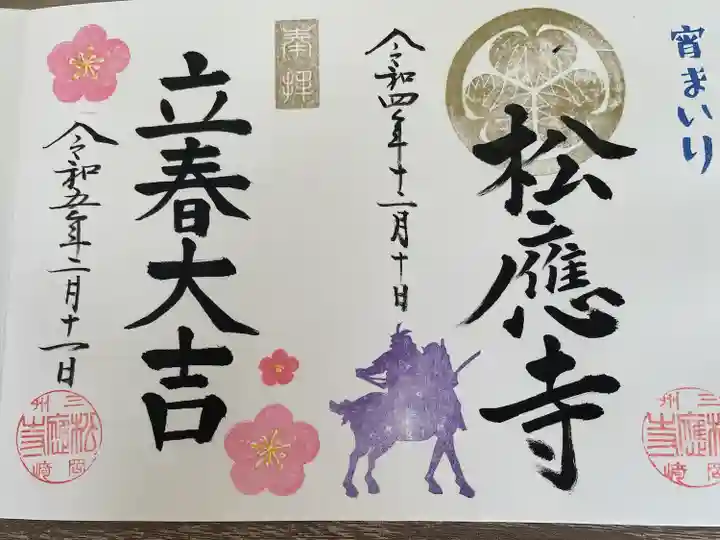 宵まいり
松應寺
令和四年十二月十日
奉拝
立春大吉
令和五年二月十一日
三州岡崎松應寺
三州岡崎松應寺